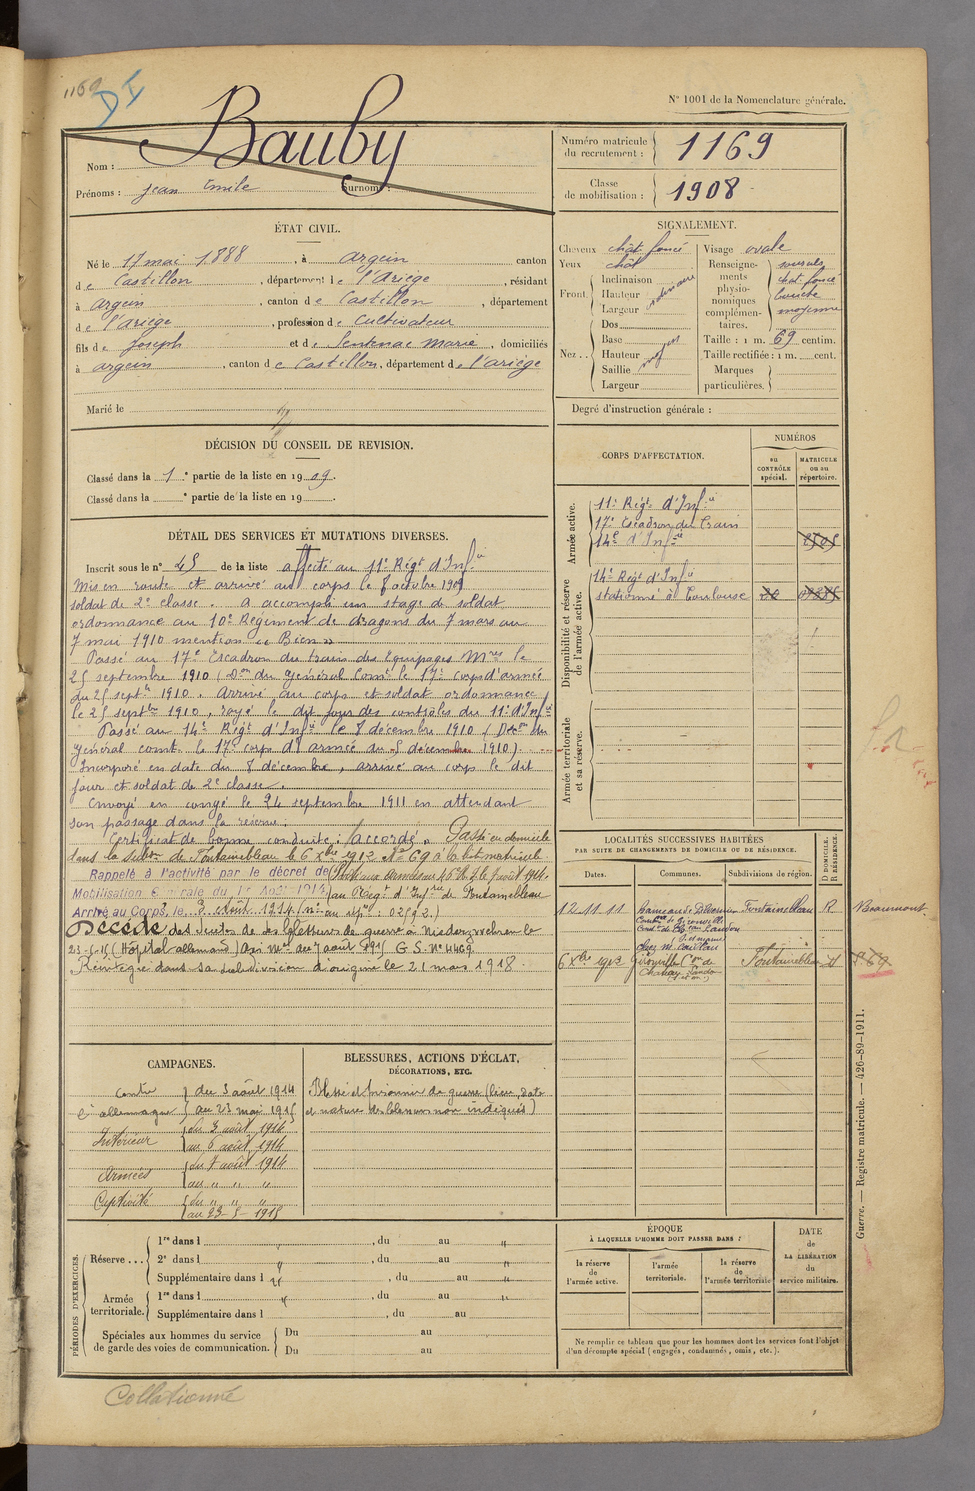 1169
N° 1001 de la Nomenclature générale.
Nom : Bauby
Prénoms : Jean Emile Surnoms :
Numéro matricule du recrutement : 1169
Classe de mobilisation : 1908
ÉTAT CIVIL.
Né le 17 mai 1888, à Argein canton
de Castillon, département de l'Ariège, résidant
à Argein, canton de Castillon, département
de l'Ariège, profession de Cultivateur
fils de Joseph et de Sentenac Marie, domiciliés
à Argein, canton de Castillon, département de l'Ariège
Marié le
SIGNALEMENT.
Cheveux chât. foncé
Yeux chât
Front. Inclinaison
Hauteur ordinaire
Largeur
Nez .. Dos
Base
Hauteur moy
Saillie
Largeur
Visage ovale
Renseignements physionomiques complémentaires. sourcils
chat. foncé
bouche
moyenne
Taille : 1 m. 69 centim.
Taille rectifiée : 1 m. cent.
Marques particulières.
Degré d'instruction générale :
DÉCISION DU CONSEIL DE REVISION.
Classé dans la 1re partie de la liste en 1909.
Classé dans la e partie de la liste en 19 .
DÉTAIL DES SERVICES ET MUTATIONS DIVERSES.
Inscrit sous le n° 45 de la liste affecté au 11e Régt d'Infie
Mis en route et arrivé au corps le 8 octobre 1909
soldat de 2e classe. A accompli un stage de soldat
ordonnance au 10e Régiment de dragons du 7 mars au
7 mai 1910 mention "Bien"
Passé au 17e Escadron du train des Equipages Mres le
25 septembre 1910 (Don du Général Comt le 17e corps d'armée
du 25 septbre 1910. Arrivé au corps et soldat ordonnance
le 25 septbre 1910, rayé le dit jour des contrôles du 11e d'Infie
Passé au 14e Régt d'Infie le 8 décembre 1910 (Décon du
général comt. le 17e corps d'armée du 5 décembre 1910).
Incorporé en date du 8 décembre, arrivé au corps le dit
jour et soldat de 2e classe.
Envoyé en congé le 24 septembre 1911 en attendant
son passage dans la réserve.
Certificat de bonne conduite : "accordé". Passé en domicile
dans la Subon de Fontainebleau le 6 Xbre 1912 N° 69 à la list matricule.
Rappelé à l'activité par le décret de
Mobilisation Générale du 1er Août 1914
au Régt d'Infie de Fontainebleau
Arrivé au Corps, le 3 Août 1914 (n° au répre : 02592.)
Décédé des suites de ses blessures de guerre à Niederzwehren le
23-5-15 (Hôpital allemand) Avis Mel du 7 août 1915 G.S. N° 4469
Réintégré dans sa subdivision d'origine le 21 mars 1918
CORPS D'AFFECTATION.
NUMÉROS
au CONTRÔLE spécial.
MATRICULE ou au répertoire.
Armée active.
11e Régt d'Infie
17e Escadron du Train
14e d'Infie
Disponibilité et réserve de l'armée active.
14e Régt d'Infie
stationné à Toulouse
Armée territoriale et sa réserve.
LOCALITÉS SUCCESSIVES HABITÉES
PAR SUITE DE CHANGEMENTS DE DOMICILE OU DE RÉSIDENCE.
Dates.
Communes.
Subdivisions de région.
D DOMICILE. R RÉSIDENCE.
12 11 11 Fontainebleau R Beaumont
6 Xbre 1912 Gironville Con de Fontainebleau D
CAMPAGNES.
Contre l'allemagne du 3 août 1914
au 23 mai 1915
Intérieur du 3 août 1914
au 6 août 1914
Armées du 7 août 1914
au " " "
Captivité du " " "
au 23-5-1915
BLESSURES, ACTIONS D'ÉCLAT,
DÉCORATIONS, ETC.
Blessé et prisonnier de guerre (lieu, date
et nature des blessures non indiqués)
PÉRIODES D'EXERCICES.
Réserve ... 1re dans l , du au
2e dans l , du au
Supplémentaire dans l , du au
Armée territoriale. 1re dans l , du au
Supplémentaire dans l , du au
Spéciales aux hommes du service de garde des voies de communication. Du au
Du au
ÉPOQUE
À LAQUELLE L'HOMME DOIT PASSER DANS :
la réserve de l'armée active.
l'armée territoriale.
la réserve de l'armée territoriale
DATE de LA LIBÉRATION du service militaire.
Ne remplir ce tableau que pour les hommes dont les services font l'objet
d'un décompte spécial (engagés, condamnés, omis, etc.).
Guerre. — Registre matricule. — 426-89-1911.
Collationné